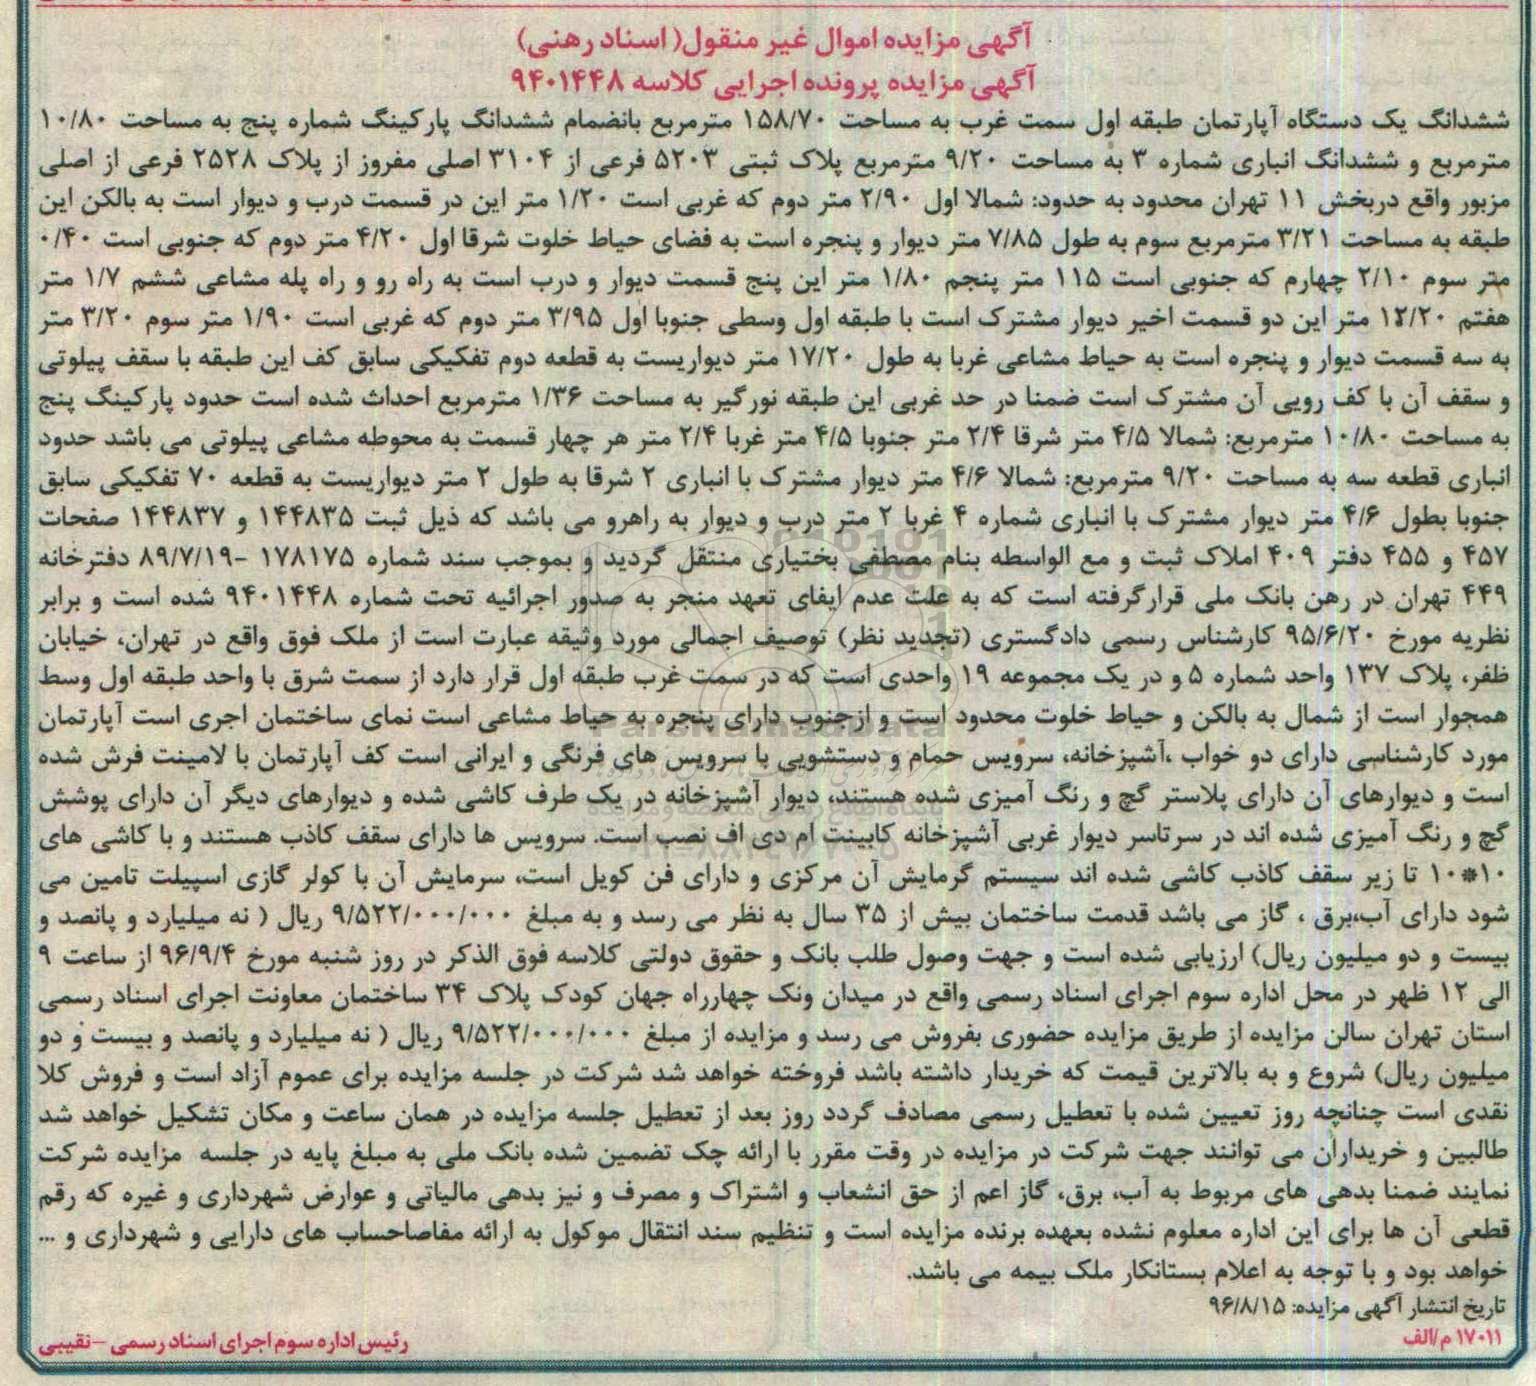 آگهی مزایده اموال غیر منقول( اسناد رهنی)
آگهی مزایده پرونده اجرایی کلاسه ۹۴۰۱۴۴۸
ششدانگ یک دستگاه آپارتمان طبقه اول سمت غرب به مساحت ۱۵۸/۷۰ مترمربع بانضمام ششدانگ پارکینگ شماره پنج به مساحت ۱۰/۸۰
مترمربع و ششدانگ انباری شماره ۳ به مساحت ۹/۲۰ مترمربع پلاک ثبتی ۵۲۰۳ فرعی از ۳۱۰۴ اصلی مفروز از پلاک ۲۵۲۸ فرعی از اصلی
مزبور واقع دربخش ۱۱ تهران محدود به حدود: شمالا اول ۲/۹۰ متر دوم که غربی است ۱/۲۰ متر این در قسمت درب و دیوار است به بالکن این
طبقه به مساحت ۳/۲۱ مترمربع سوم به طول ۷/۸۵ متر دیوار و پنجره است به فضای حیاط خلوت شرقا اول ۴/۲۰ متر دوم که جنوبی است ۰/۴۰
متر سوم ۲/۱۰ چهارم که جنوبی است ۱۱۵ متر پنجم ۱/۸۰ متر این پنج قسمت دیوار و درب است به راه رو و راه پله مشاعی ششم ۱/۷ متر
هفتم ۱۲/۲۰ متر این دو قسمت اخیر دیوار مشترک است با طبقه اول وسطی جنوبا اول ۳/۹۵ متر دوم که غربی است ۱/۹۰ متر سوم ۳/۲۰ متر
به سه قسمت دیوار و پنجره است به حیاط مشاعی غربا به طول ۱۷/۲۰ متر دیواریست به قطعه دوم تفکیکی سابق کف این طبقه با سقف پیلوتی
و سقف آن با کف رویی آن مشترک است ضمنا در حد غربی این طبقه نورگیر به مساحت ۱/۳۶ مترمربع احداث شده است حدود پارکینگ پنج
به مساحت ۱۰/۸۰ مترمربع: شمالا ۴/۵ متر شرقا ۲/۴ متر جنوبا ۴/۵ متر غربا ۲/۴ متر هر چهار قسمت به محوطه مشاعی پیلوتی می باشد حدود
انباری قطعه سه به مساحت ۹/۲۰ مترمربع: شمالا ۴/۶ متر دیوار مشترک با انباری ۲ شرقا به طول ۲ متر دیواریست به قطعه ۷۰ تفکیکی سابق
جنوبا بطول ۴/۶ متر دیوار مشترک با انباری شماره ۴ غربا ۲ متر درب و دیوار به راهرو می باشد که ذیل ثبت ۱۴۴۸۳۵ و ۱۴۴۸۳۷ صفحات
۴۵۷ و ۴۵۵ دفتر ۴۰۹ املاک ثبت و مع الواسطه بنام مصطفی بختیاری منتقل گردید و بموجب سند شماره ۱۷۸۱۷۵ -۸۹/۷/۱۹ دفترخانه
۴۴۹ تهران در رهن بانک ملی قرارگرفته است که به علت عدم ایفای تعهد منجر به صدور اجرائیه تحت شماره ۹۴۰۱۴۴۸ شده است و برابر
نظریه مورخ ۹۵/۶/۲۰ کارشناس رسمی دادگستری (تجدید نظر) توصیف اجمالی مورد وثیقه عبارت است از ملک فوق واقع در تهران، خیابان
ظفر، پلاک ۱۳۷ واحد شماره ۵ و در یک مجموعه ۱۹ واحدی است که در سمت غرب طبقه اول قرار دارد از سمت شرق با واحد طبقه اول وسط
همجوار است از شمال به بالکن و حیاط خلوت محدود است و ازجنوب دارای پنجره به حیاط مشاعی است نمای ساختمان اجری است آپارتمان
مورد کارشناسی دارای دو خواب ،آشپزخانه، سرویس حمام و دستشویی با سرویس های فرنگی و ایرانی است کف آپارتمان با لامینت فرش شده
است و دیوارهای آن دارای پلاستر گچ و رنگ آمیزی شده هستند، دیوار آشپزخانه در یک طرف کاشی شده و دیوارهای دیگر آن دارای پوشش
گچ و رنگ آمیزی شده اند در سرتاسر دیوار غربی آشپزخانه کابینت ام دی اف نصب است. سرویس ها دارای سقف کاذب هستند و با کاشی های
۱۰*۱۰ تا زیر سقف کاذب کاشی شده اند سیستم گرمایش آن مرکزی و دارای فن کویل است، سرمایش آن با کولر گازی اسپیلت تامین می
شود دارای آب،برق ، گاز می باشد قدمت ساختمان بیش از ۳۵ سال به نظر می رسد و به مبلغ ۹/۵۲۲/۰۰۰/۰۰۰ ریال ( نه میلیارد و پانصد و
بیست و دو میلیون ریال) ارزیابی شده است و جهت وصول طلب بانک و حقوق دولتی کلاسه فوق الذکر در روز شنبه مورخ ۹۶/۹/۴ از ساعت ۹
الی ۱۲ ظهر در محل اداره سوم اجرای اسناد رسمی واقع در میدان ونک چهارراه جهان کودک پلاک ۳۴ ساختمان معاونت اجرای اسناد رسمی
استان تهران سالن مزایده از طریق مزایده حضوری بفروش می رسد و مزایده از مبلغ ۹/۵۲۲/۰۰۰/۰۰۰ ریال ( نه میلیارد و پانصد و بیست و دو
میلیون ریال) شروع و به بالاترین قیمت که خریدار داشته باشد فروخته خواهد شد شرکت در جلسه مزایده برای عموم آزاد است و فروش کلا
نقدی است چنانچه روز تعیین شده با تعطیل رسمی مصادف گردد روز بعد از تعطیل جلسه مزایده در همان ساعت و مکان تشکیل خواهد شد
طالبین و خریداران می توانند جهت شرکت در مزایده در وقت مقرر با ارائه چک تضمین شده بانک ملی به مبلغ پایه در جلسه مزایده شرکت
نمایند ضمنا بدهی های مربوط به آب، برق، گاز اعم از حق انشعاب و اشتراک و مصرف و نیز بدهی مالیاتی و عوارض شهرداری و غیره که رقم
قطعی آن ها برای این اداره معلوم نشده بعهده برنده مزایده است و تنظیم سند انتقال موکول به ارائه مفاصاحساب های دارایی و شهرداری و ...
خواهد بود و با توجه به اعلام بستانکار ملک بیمه می باشد.
تاریخ انتشار آگهی مزایده: ۹۶/۸/۱۵
۱۷۰۱۱ م/الف
رئیس اداره سوم اجرای اسناد رسمی -نقیبی